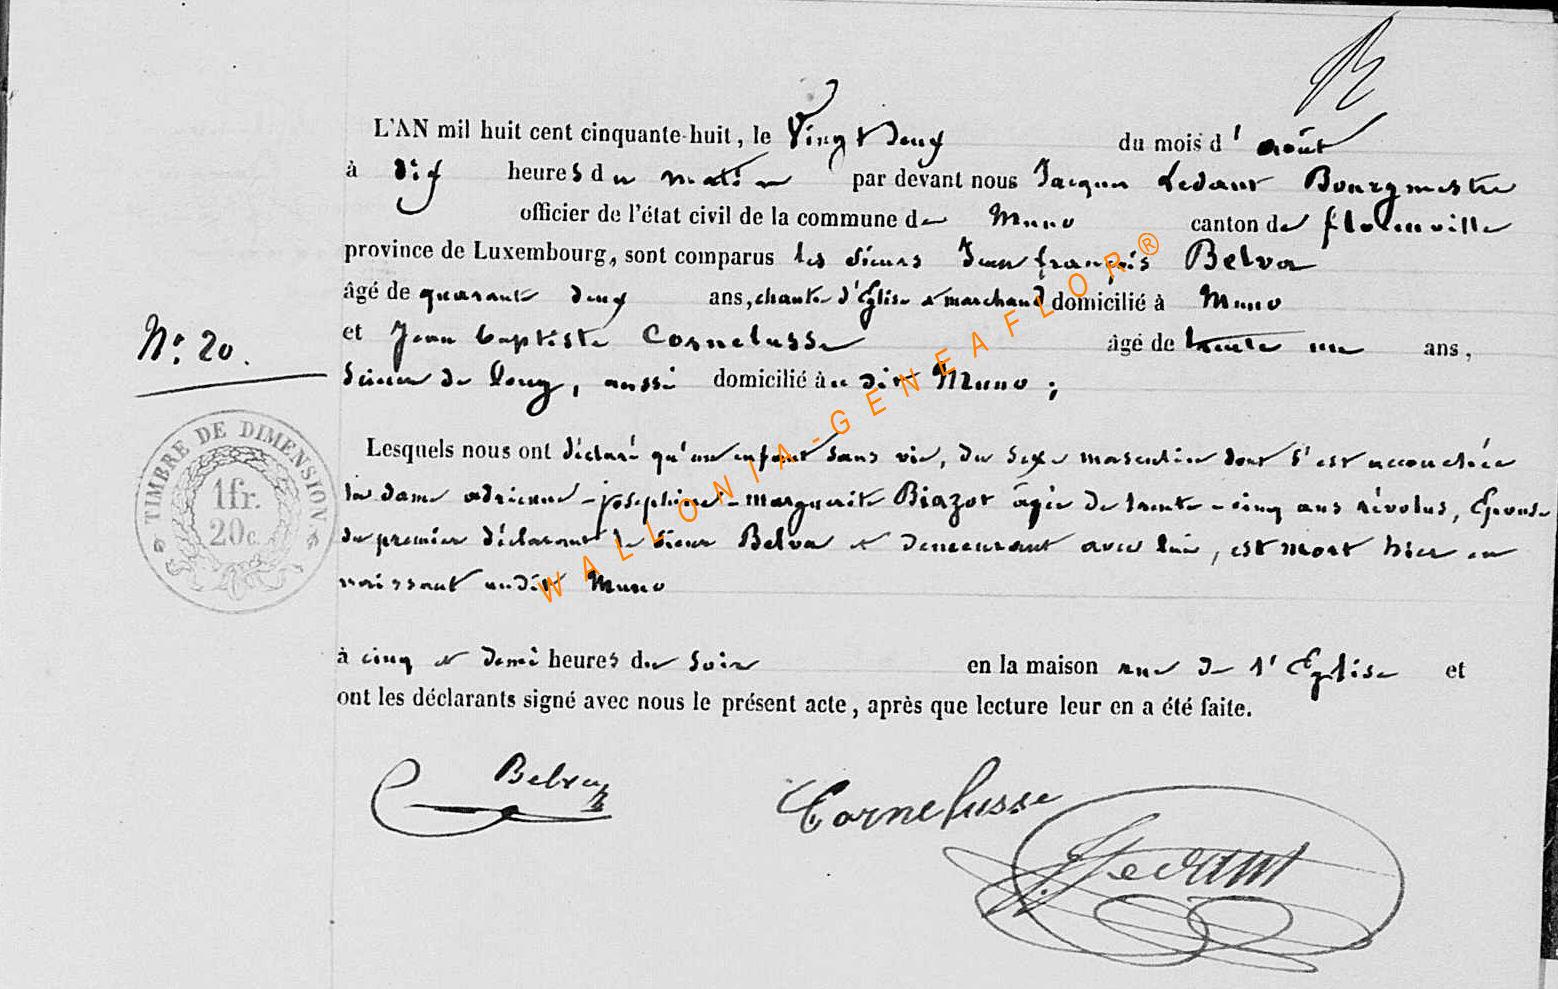 L'AN mil huit cent cinquante-huit, le Vingt deux du mois d'août
à dix heures du matin par devant nous Jacques Ledant Bourgmestre
officier de l'état civil de la commune de Muno canton de florenville
province de Luxembourg, sont comparus les sieurs Jean françois Belva
âgé de quarante deux ans, chantre d'Eglise et marchand domicilié à Muno
N° 20.
et Jean baptiste Cornelusse âgé de trente un ans,
Scieur de long, aussi domicilié au dit Muno;
TIMBRE DE DIMENSION
1fr.
20c.
Lesquels nous ont déclaré qu'un enfant sans vie, du sexe masculin dont s'est accouchée
la dame adrienne-joséphine-marguerite Biazot âgée de trente-cinq ans révolus, Epouse
du premier déclarant le sieur Belva et demeurant avec lui, est mort hier en
naissant audit Muno
à cinq et demi heures du soir en la maison rue de l'Eglise et
ont les déclarants signé avec nous le présent acte, après que lecture leur en a été faite.
Belva
Cornelusse
Ledant
WALLONIA-GENEAFLOR®